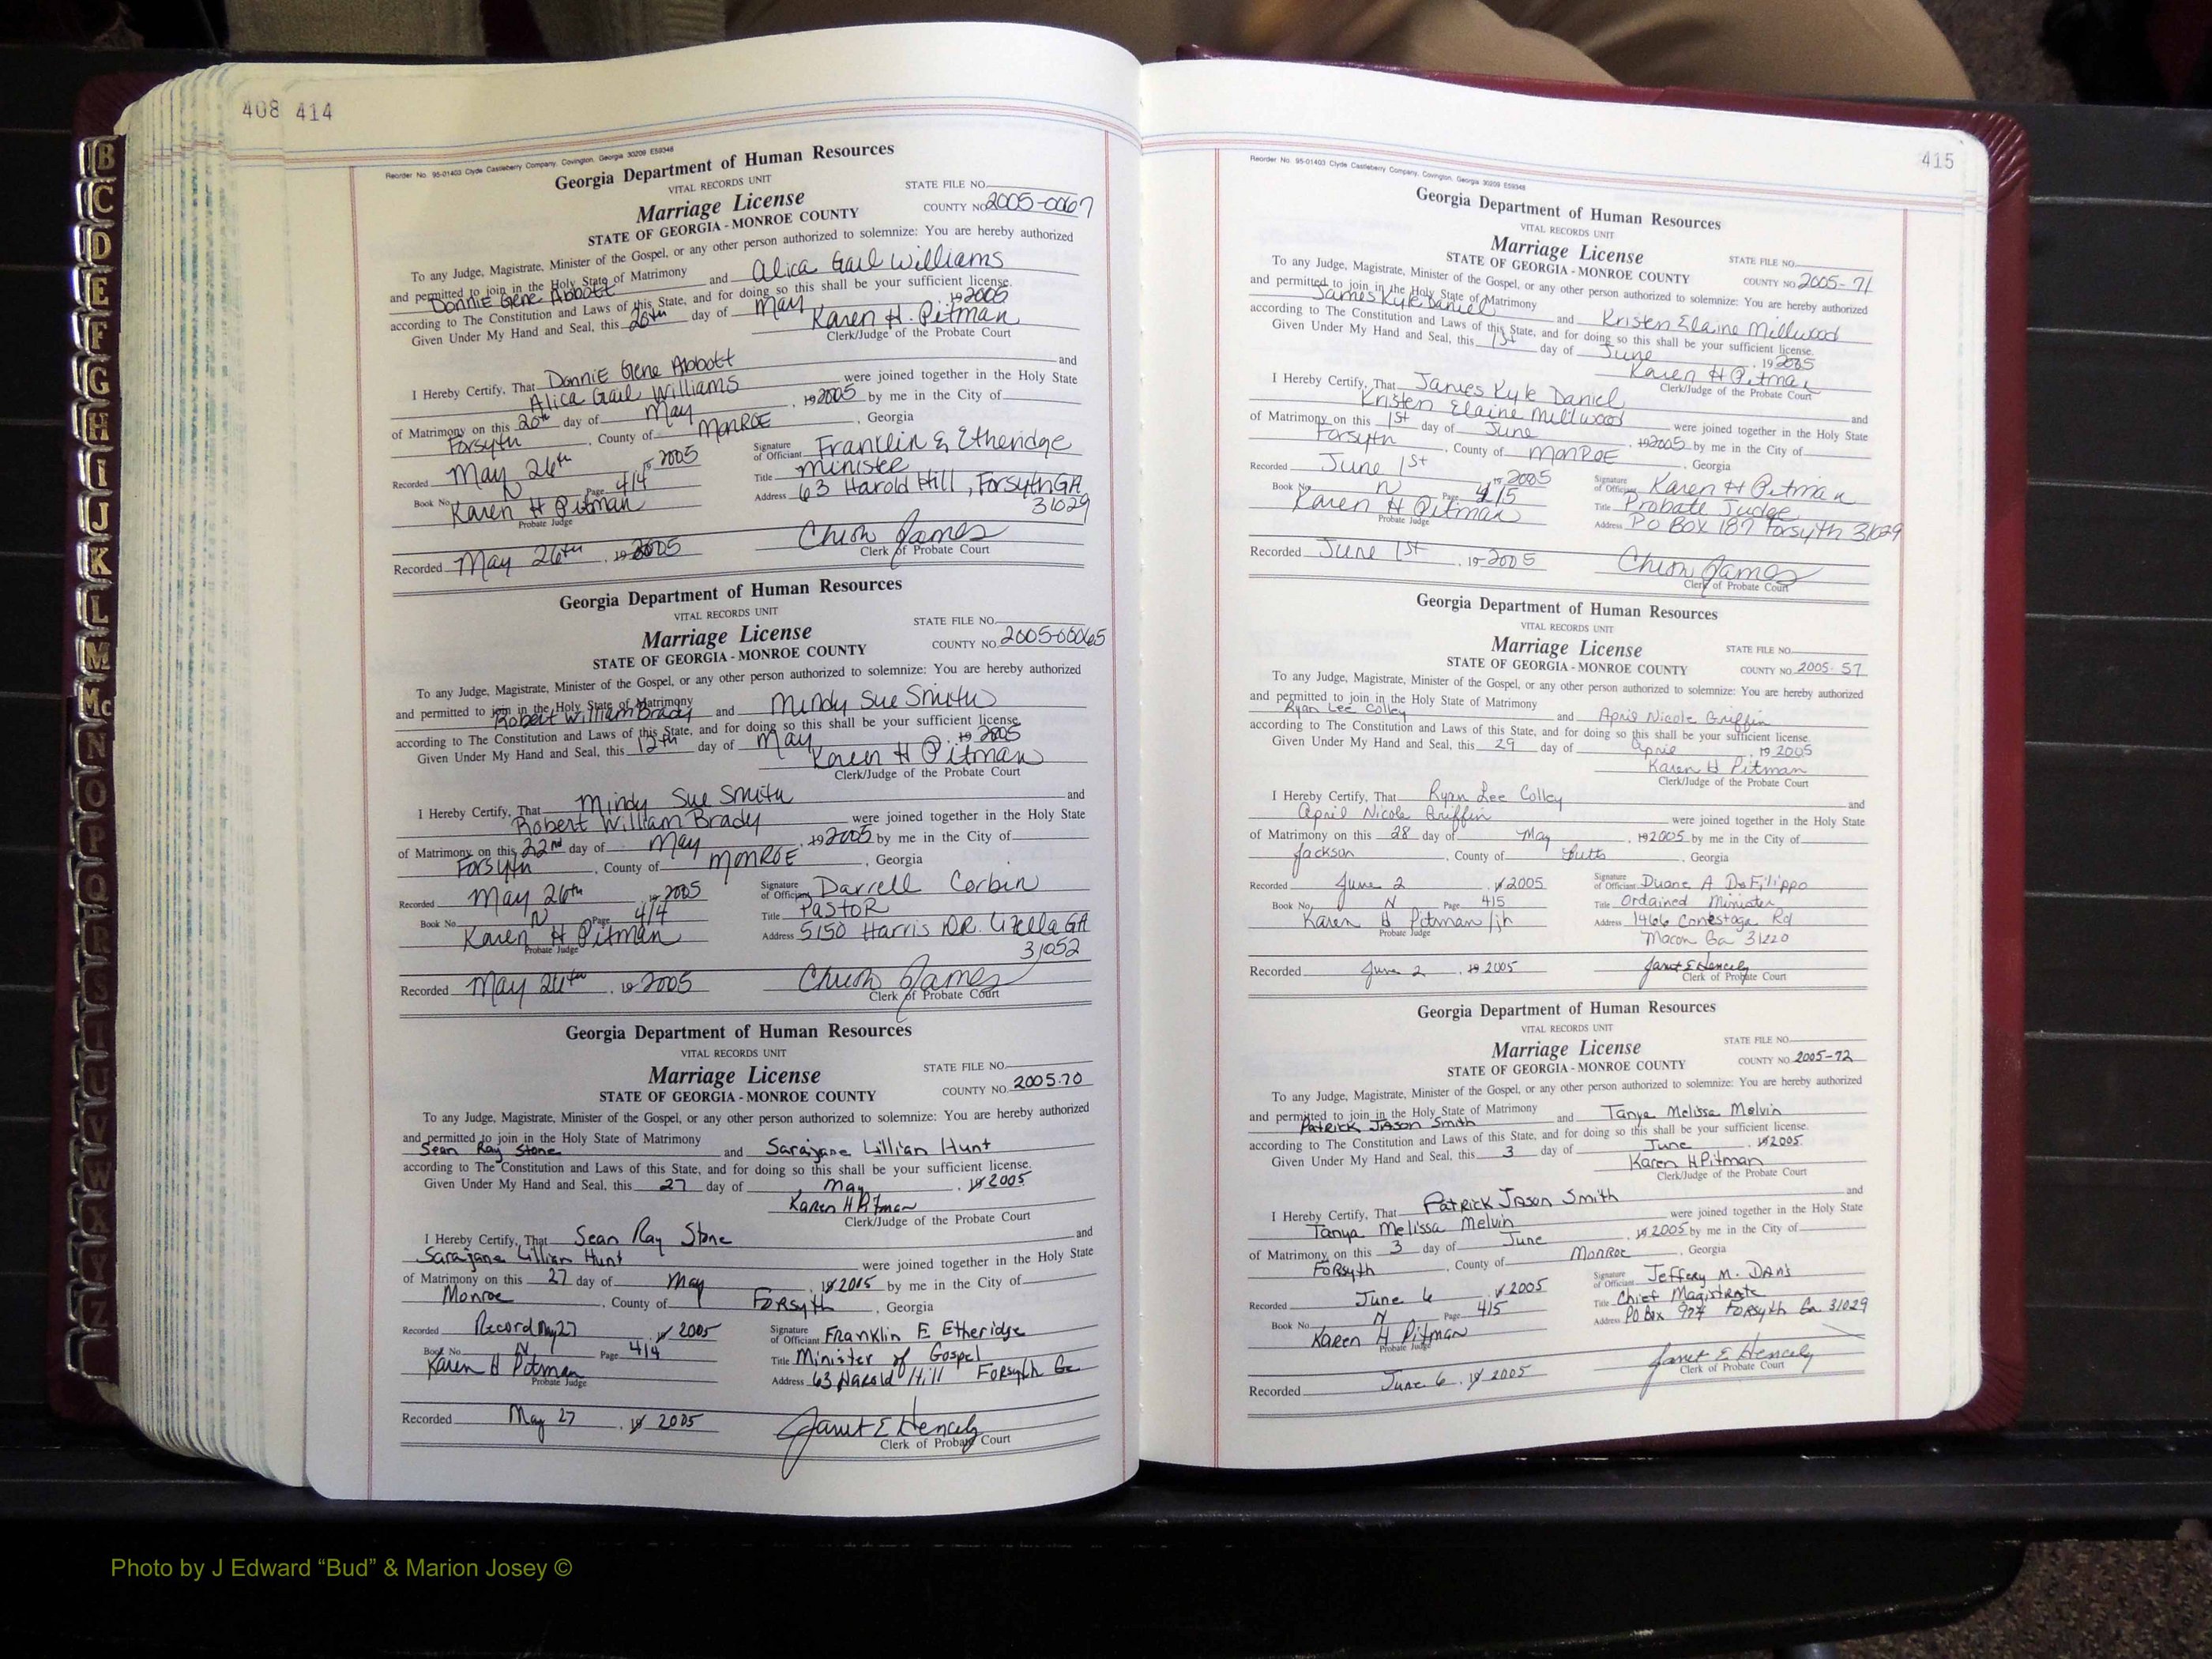 408 414
Reorder No. 95-01403 Clyde Castleberry Company, Covington, Georgia 30209 E59348
Georgia Department of Human Resources
VITAL RECORDS UNIT
STATE FILE NO.
Marriage License
COUNTY NO 2005-0067
STATE OF GEORGIA - MONROE COUNTY
To any Judge, Magistrate, Minister of the Gospel, or any other person authorized to solemnize: You are hereby authorized
and permitted to join in the Holy State of Matrimony
Donnie Gene Abbott and Alica Gail Williams
according to The Constitution and Laws of this State, and for doing so this shall be your sufficient license.
Given Under My Hand and Seal, this 20th day of May, 19 2005
Karen H. Pitman
Clerk/Judge of the Probate Court
I Hereby Certify, That Donnie Gene Abbott and
Alica Gail Williams were joined together in the Holy State
of Matrimony on this 20th day of May, 19 2005 by me in the City of
Forsyth, County of MONROE, Georgia
Recorded May 26th 19 2005
Signature of Officiant Franklin E Etheridge
Book No. N Page 414
Title minister
Karen H Pitman
Probate Judge
Address 63 Harold Hill, Forsyth GA
31029
Recorded May 26th, 19 2005
James
Clerk of Probate Court
Georgia Department of Human Resources
VITAL RECORDS UNIT
STATE FILE NO.
Marriage License
COUNTY NO. 2005-00065
STATE OF GEORGIA - MONROE COUNTY
To any Judge, Magistrate, Minister of the Gospel, or any other person authorized to solemnize: You are hereby authorized
and permitted to join in the Holy State of Matrimony
Robert William Brady and Mindy Sue Smith
according to The Constitution and Laws of this State, and for doing so this shall be your sufficient license.
Given Under My Hand and Seal, this 12th day of May, 19 2005
Karen H Pitman
Clerk/Judge of the Probate Court
I Hereby Certify, That Mindy Sue Smith and
Robert William Brady were joined together in the Holy State
of Matrimony on this 22nd day of May, 19 2005 by me in the City of
Forsyth, County of MONROE, Georgia
Recorded May 26th, 19 2005
Signature of Officiant Darrell Corbin
Book No. N Page 414
Title Pastor
Karen H Pitman
Probate Judge
Address 5150 Harris DR. Lizella GA
31052
Recorded May 26th, 19 2005
James
Clerk of Probate Court
Georgia Department of Human Resources
VITAL RECORDS UNIT
STATE FILE NO.
Marriage License
COUNTY NO. 2005-70
STATE OF GEORGIA - MONROE COUNTY
To any Judge, Magistrate, Minister of the Gospel, or any other person authorized to solemnize: You are hereby authorized
and permitted to join in the Holy State of Matrimony
Sean Ray Stone and Sarajane Lillian Hunt
according to The Constitution and Laws of this State, and for doing so this shall be your sufficient license.
Given Under My Hand and Seal, this 27 day of May, 19 2005
Karen H Pitman
Clerk/Judge of the Probate Court
I Hereby Certify, That Sean Ray Stone and
Sarajane Lillian Hunt were joined together in the Holy State
of Matrimony on this 27 day of May, 19 2005 by me in the City of
Monroe, County of Forsyth, Georgia
Recorded Record May 27 19 2005
Signature of Officiant Franklin E Etheridge
Book No. N Page 414
Title Minister of Gospel
Karen H Pitman
Probate Judge
Address 63 Harold Hill Forsyth Ga
Recorded May 27, 19 2005
Janet E Hencely
Clerk of Probate Court
415
Reorder No. 95-01403 Clyde Castleberry Company, Covington, Georgia 30209 E59348
Georgia Department of Human Resources
VITAL RECORDS UNIT
Marriage License
STATE FILE NO.
STATE OF GEORGIA - MONROE COUNTY
COUNTY NO 2005-71
To any Judge, Magistrate, Minister of the Gospel, or any other person authorized to solemnize: You are hereby authorized
and permitted to join in the Holy State of Matrimony
James Kyle Daniel and Kristen Elaine Millwood
according to The Constitution and Laws of this State, and for doing so this shall be your sufficient license.
Given Under My Hand and Seal, this 1st day of June, 19 2005
Karen H Pitman
Clerk/Judge of the Probate Court
I Hereby Certify, That James Kyle Daniel and
Kristen Elaine Millwood were joined together in the Holy State
of Matrimony on this 1st day of June, 19 2005 by me in the City of
Forsyth, County of MONROE, Georgia
Recorded June 1st, 19 2005
Signature of Officiant Karen H Pitman
Book No. N Page 415
Title Probate Judge
Karen H Pitman
Probate Judge
Address PO BOX 187 Forsyth 31029
Recorded June 1st, 19 2005
James
Clerk of Probate Court
Georgia Department of Human Resources
VITAL RECORDS UNIT
Marriage License
STATE FILE NO.
STATE OF GEORGIA - MONROE COUNTY
COUNTY NO 2005-57
To any Judge, Magistrate, Minister of the Gospel, or any other person authorized to solemnize: You are hereby authorized
and permitted to join in the Holy State of Matrimony
Ryan Lee Colley and April Nicole Griffin
according to The Constitution and Laws of this State, and for doing so this shall be your sufficient license.
Given Under My Hand and Seal, this 29 day of April, 19 2005
Karen H Pitman
Clerk/Judge of the Probate Court
I Hereby Certify, That Ryan Lee Colley and
April Nicole Griffin were joined together in the Holy State
of Matrimony on this 28 day of May, 19 2005 by me in the City of
Jackson, County of Butts, Georgia
Recorded June 2, 19 2005
Signature of Officiant Duane A DeFilippo
Book No. N Page 415
Title Ordained Minister
Karen H Pitman/jh
Probate Judge
Address 1466 Conestoga Rd
Macon Ga 31220
Recorded June 2, 19 2005
Janet E Hencely
Clerk of Probate Court
Georgia Department of Human Resources
VITAL RECORDS UNIT
Marriage License
STATE FILE NO.
STATE OF GEORGIA - MONROE COUNTY
COUNTY NO 2005-72
To any Judge, Magistrate, Minister of the Gospel, or any other person authorized to solemnize: You are hereby authorized
and permitted to join in the Holy State of Matrimony
Patrick Jason Smith and Tanya Melissa Melvin
according to The Constitution and Laws of this State, and for doing so this shall be your sufficient license.
Given Under My Hand and Seal, this 3 day of June, 19 2005
Karen H Pitman
Clerk/Judge of the Probate Court
I Hereby Certify, That Patrick Jason Smith and
Tanya Melissa Melvin were joined together in the Holy State
of Matrimony on this 3 day of June, 19 2005 by me in the City of
Forsyth, County of Monroe, Georgia
Recorded June 6, 19 2005
Signature of Officiant Jeffery M. Davis
Book No. N Page 415
Title Chief Magistrate
Karen H Pitman
Probate Judge
Address PO Box 974 Forsyth Ga. 31029
Recorded June 6, 19 2005
Janet E Hencely
Clerk of Probate Court
B
C
D
E
F
G
H
I
J
K
L
M
Mc
N
O
P
Q
R
S
T
U
V
W
X
Y
Z
Photo by J Edward “Bud” & Marion Josey ©